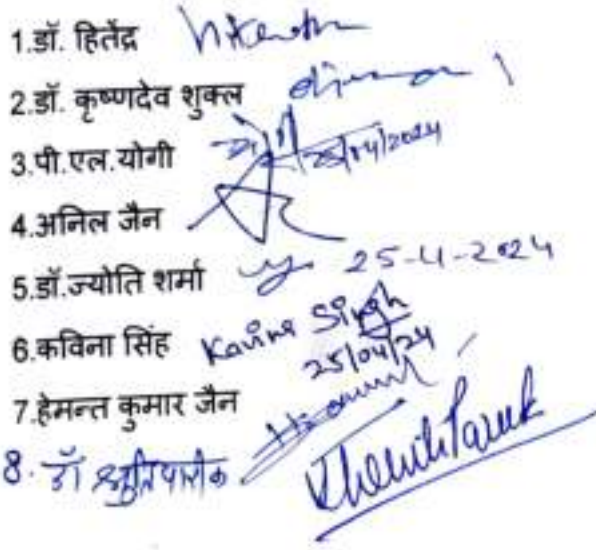 1.डॉ. हितेंद्र
2.डॉ. कृष्णदेव शुक्ल
3.पी.एल.योगी 25/04/2024
4.अनिल जैन
5.डॉ.ज्योति शर्मा 25-4-2024
6.कविना सिंह Kavina Singh
25/04/24
7.हेमन्त कुमार जैन
8. डॉ पारीक